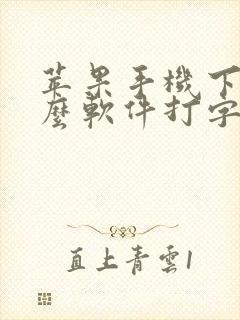 苹果手機下
麼軟件打字
直上青雲1